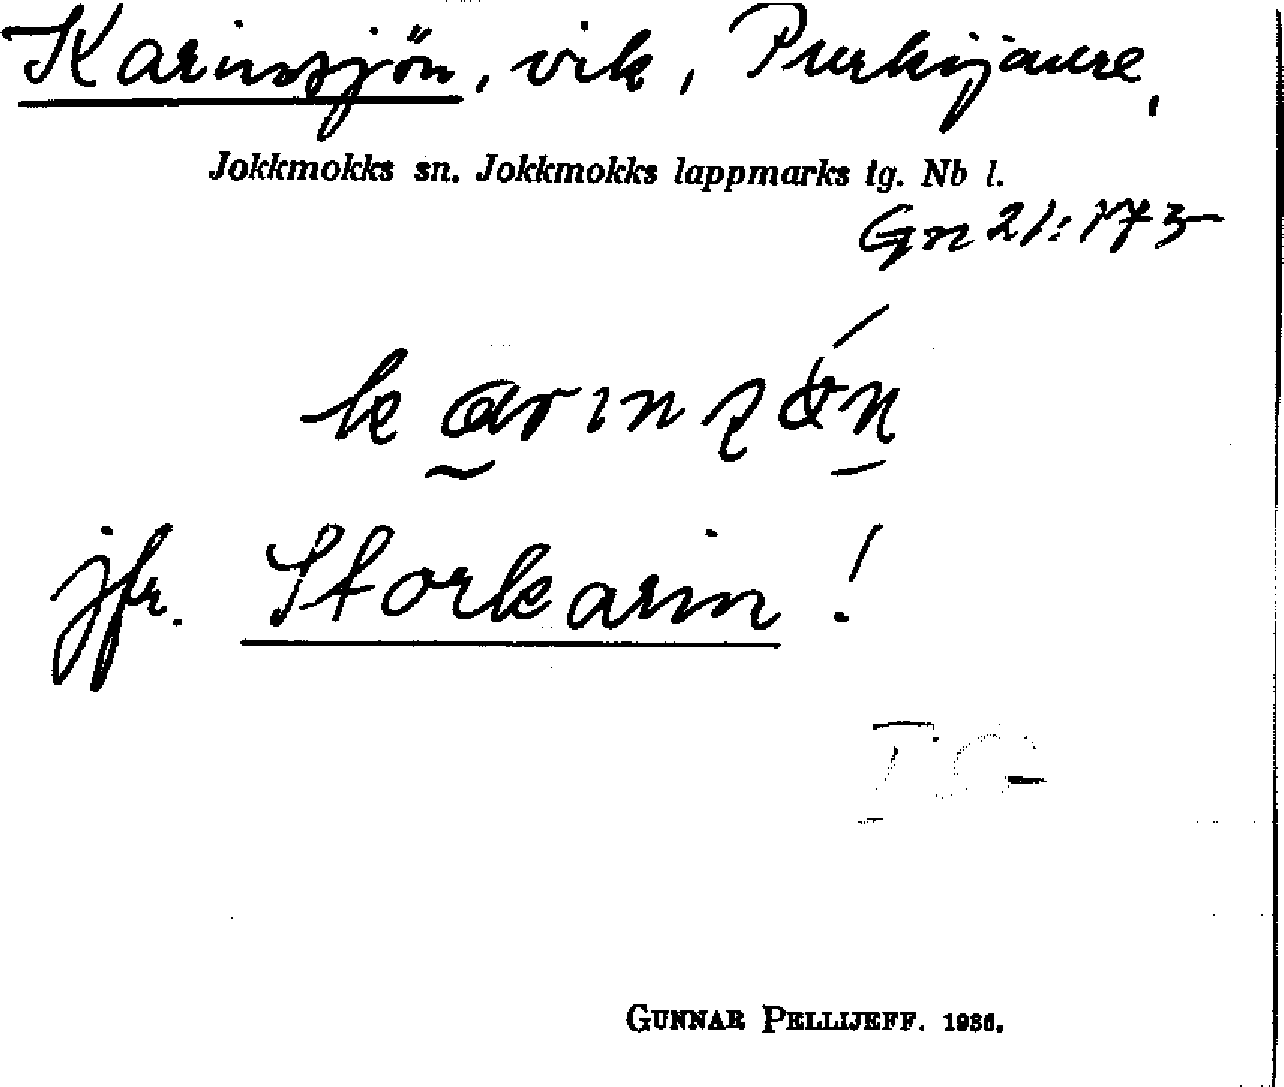 Karinssjön, vik, Purkijaure,
Jokkmokks sn. Jokkmokks lappmarks tg. Nb l.
Gn 21:173
jfr. Storkarin!
GUNNAR PELLIJEFF. 1936.